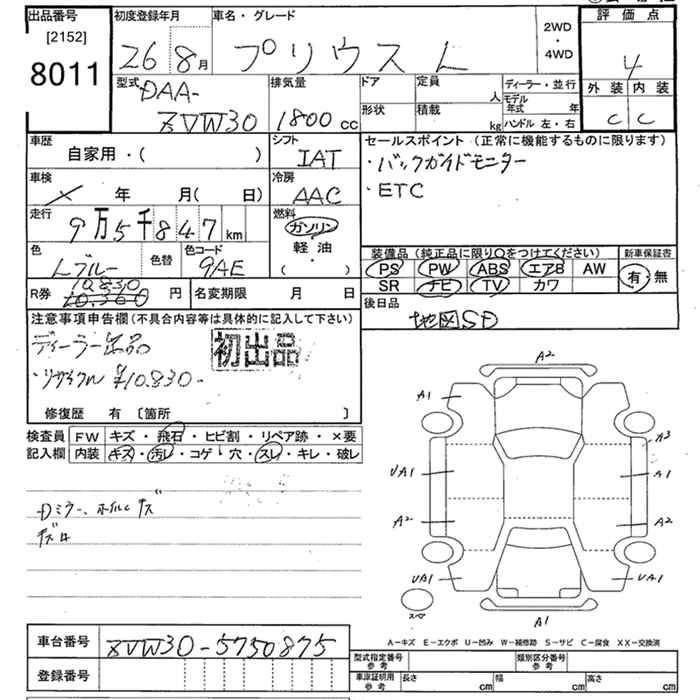 出品番号 初度登録年月 車名・グレード 2WD・4WD 評価点
[2152]
8011 26 8月 プリウス L 4
型式 DAA-ZVW30 排気量 1800cc ドア 定員 人 ディーラー・並行 外装 内装
形状 積載 kg モデル年式 年 ハンドル 左・右 C C
車歴 自家用・( ) シフト IAT セールスポイント(正常に機能するものに限ります)
・バックガイドモニター
・ETC
車検 × 年 月( 日) 冷房 AAC
走行 9万5千847km 燃料 ガソリン 軽油 ( )
色 Lブルー 色替 色コード 9AE
装備品(純正品に限り○をつけてください) 新車保証書
PS PW ABS エアB AW 有・無
SR ナビ TV カワ
R券 10,830 円 名変期限 月 日
後日品 地図SD
注意事項申告欄(不具合内容等は具体的に記入して下さい)
ディーラー出品 初出品
・リサイクル ¥10.830-
修復歴 有 〔箇所 〕
検査員記入欄 FW キズ・飛石・ヒビ割・リペア跡・×要
内装 キズ・汚レ・コゲ・穴・スレ・キレ・破レ
Dミラー、ホイルキズ
A2
A1
A3
UA1 A1
A2 A2
UA1 UA1
A1
A-キズ E-エクボ U-凹み W-補修跡 S-サビ C-腐食 XX-交換済
車台番号 ZVW30-5750875
登録番号
型式指定番号 参考 類別区分番号 参考
車庫証明用 参考 長さ cm 幅 cm 高さ cm